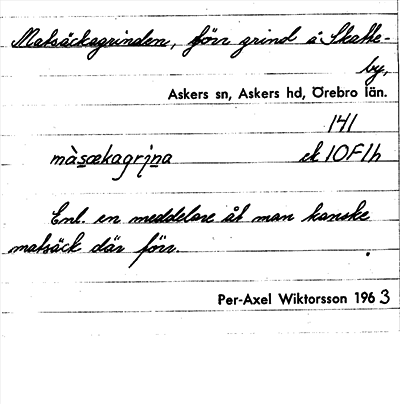 Matsäckagrinden, förr grind å Skatte-
by,
Askers sn, Askers hd, Örebro län.
141
màsækagrịna ek 10F1h
Enl. en meddelare åt man kanske
matsäck där förr.
Per-Axel Wiktorsson 1963